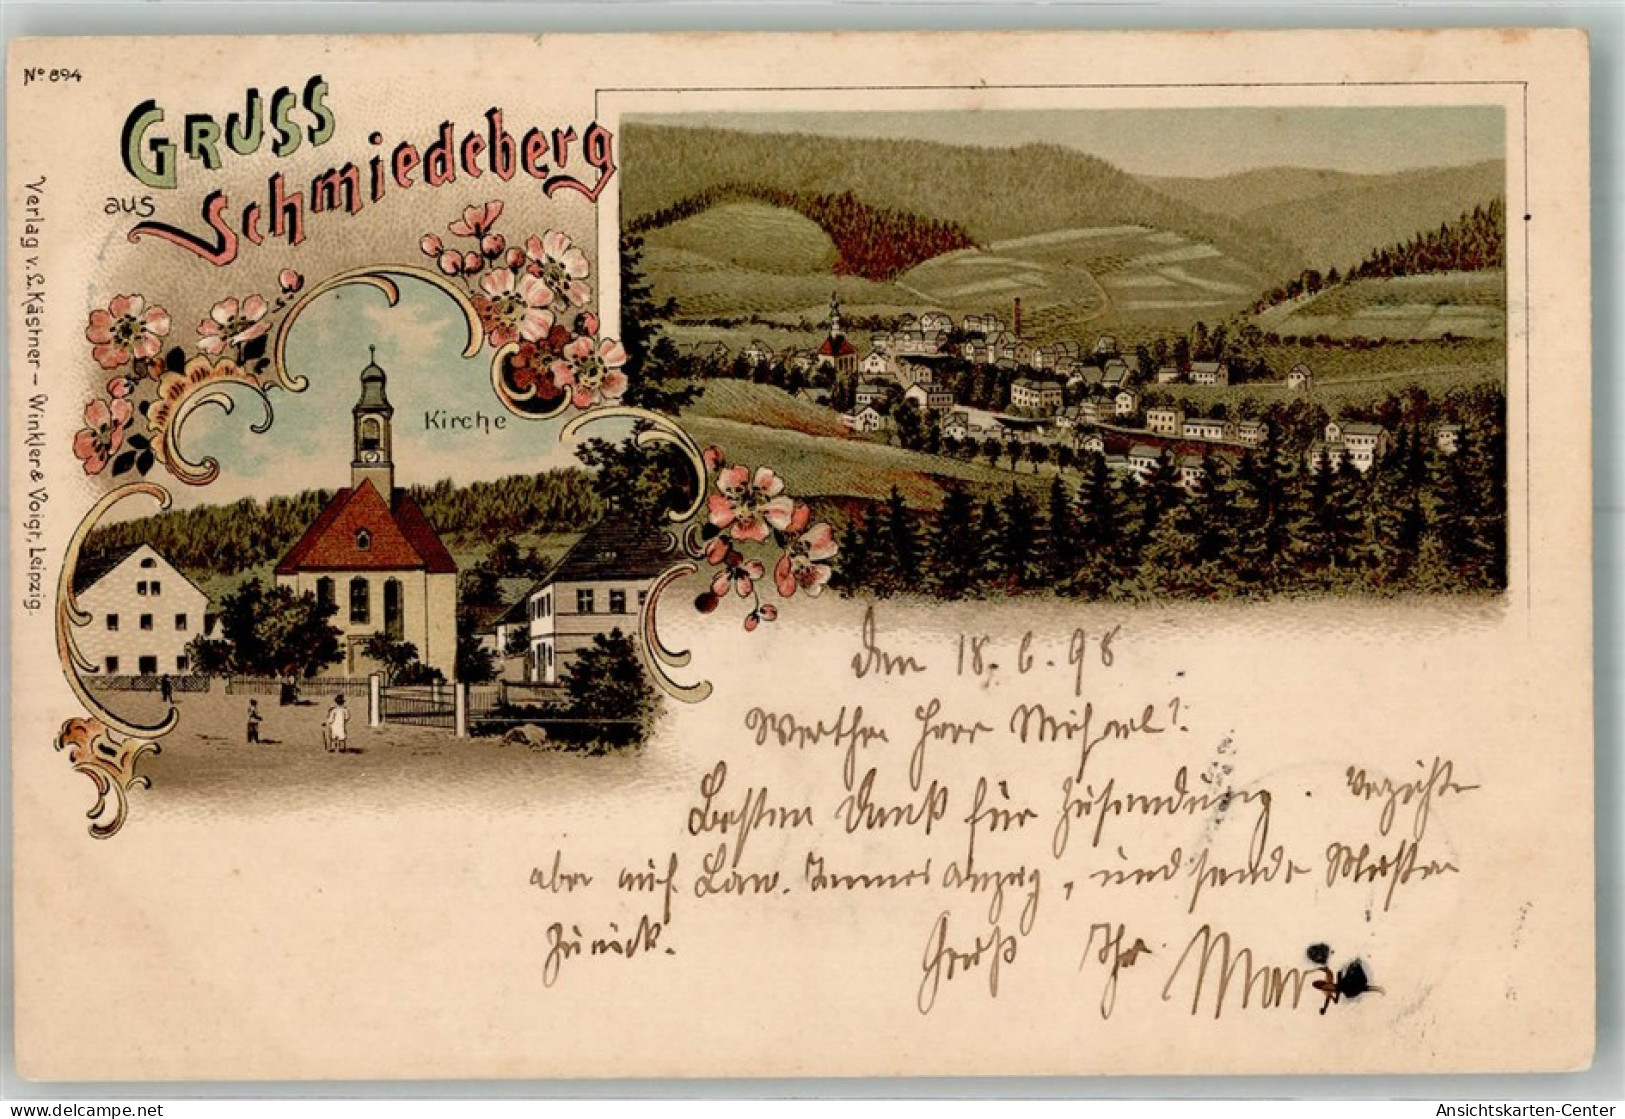 No 694
GRUSS
aus Schmiedeberg
Kirche
Verlag v. L. Kästner – Winkler & Voigt, Leipzig.
den 18. 6. 98
Werther Herr Michael!
Besten Dank für Zusendung. Verzichte
aber auf Anzug, und sende Muster
zurück. Gruß Ihr
delcampe.net
Ansichtskarten-Center